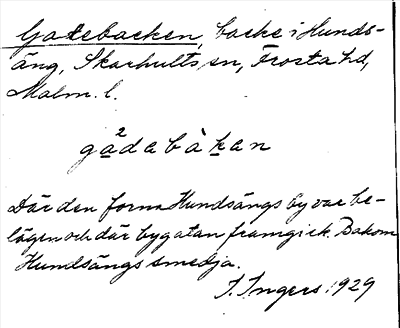 Gatebacken, backe i Hunds-
äng, Skarhults sn, Frosta hd,
Malm. l.
ga²debàkan
Där den forna Hundsängs by var be-
lägen och där bygatan framgick. Bakom
Hundsängs smedja.
I. Ingers 1929